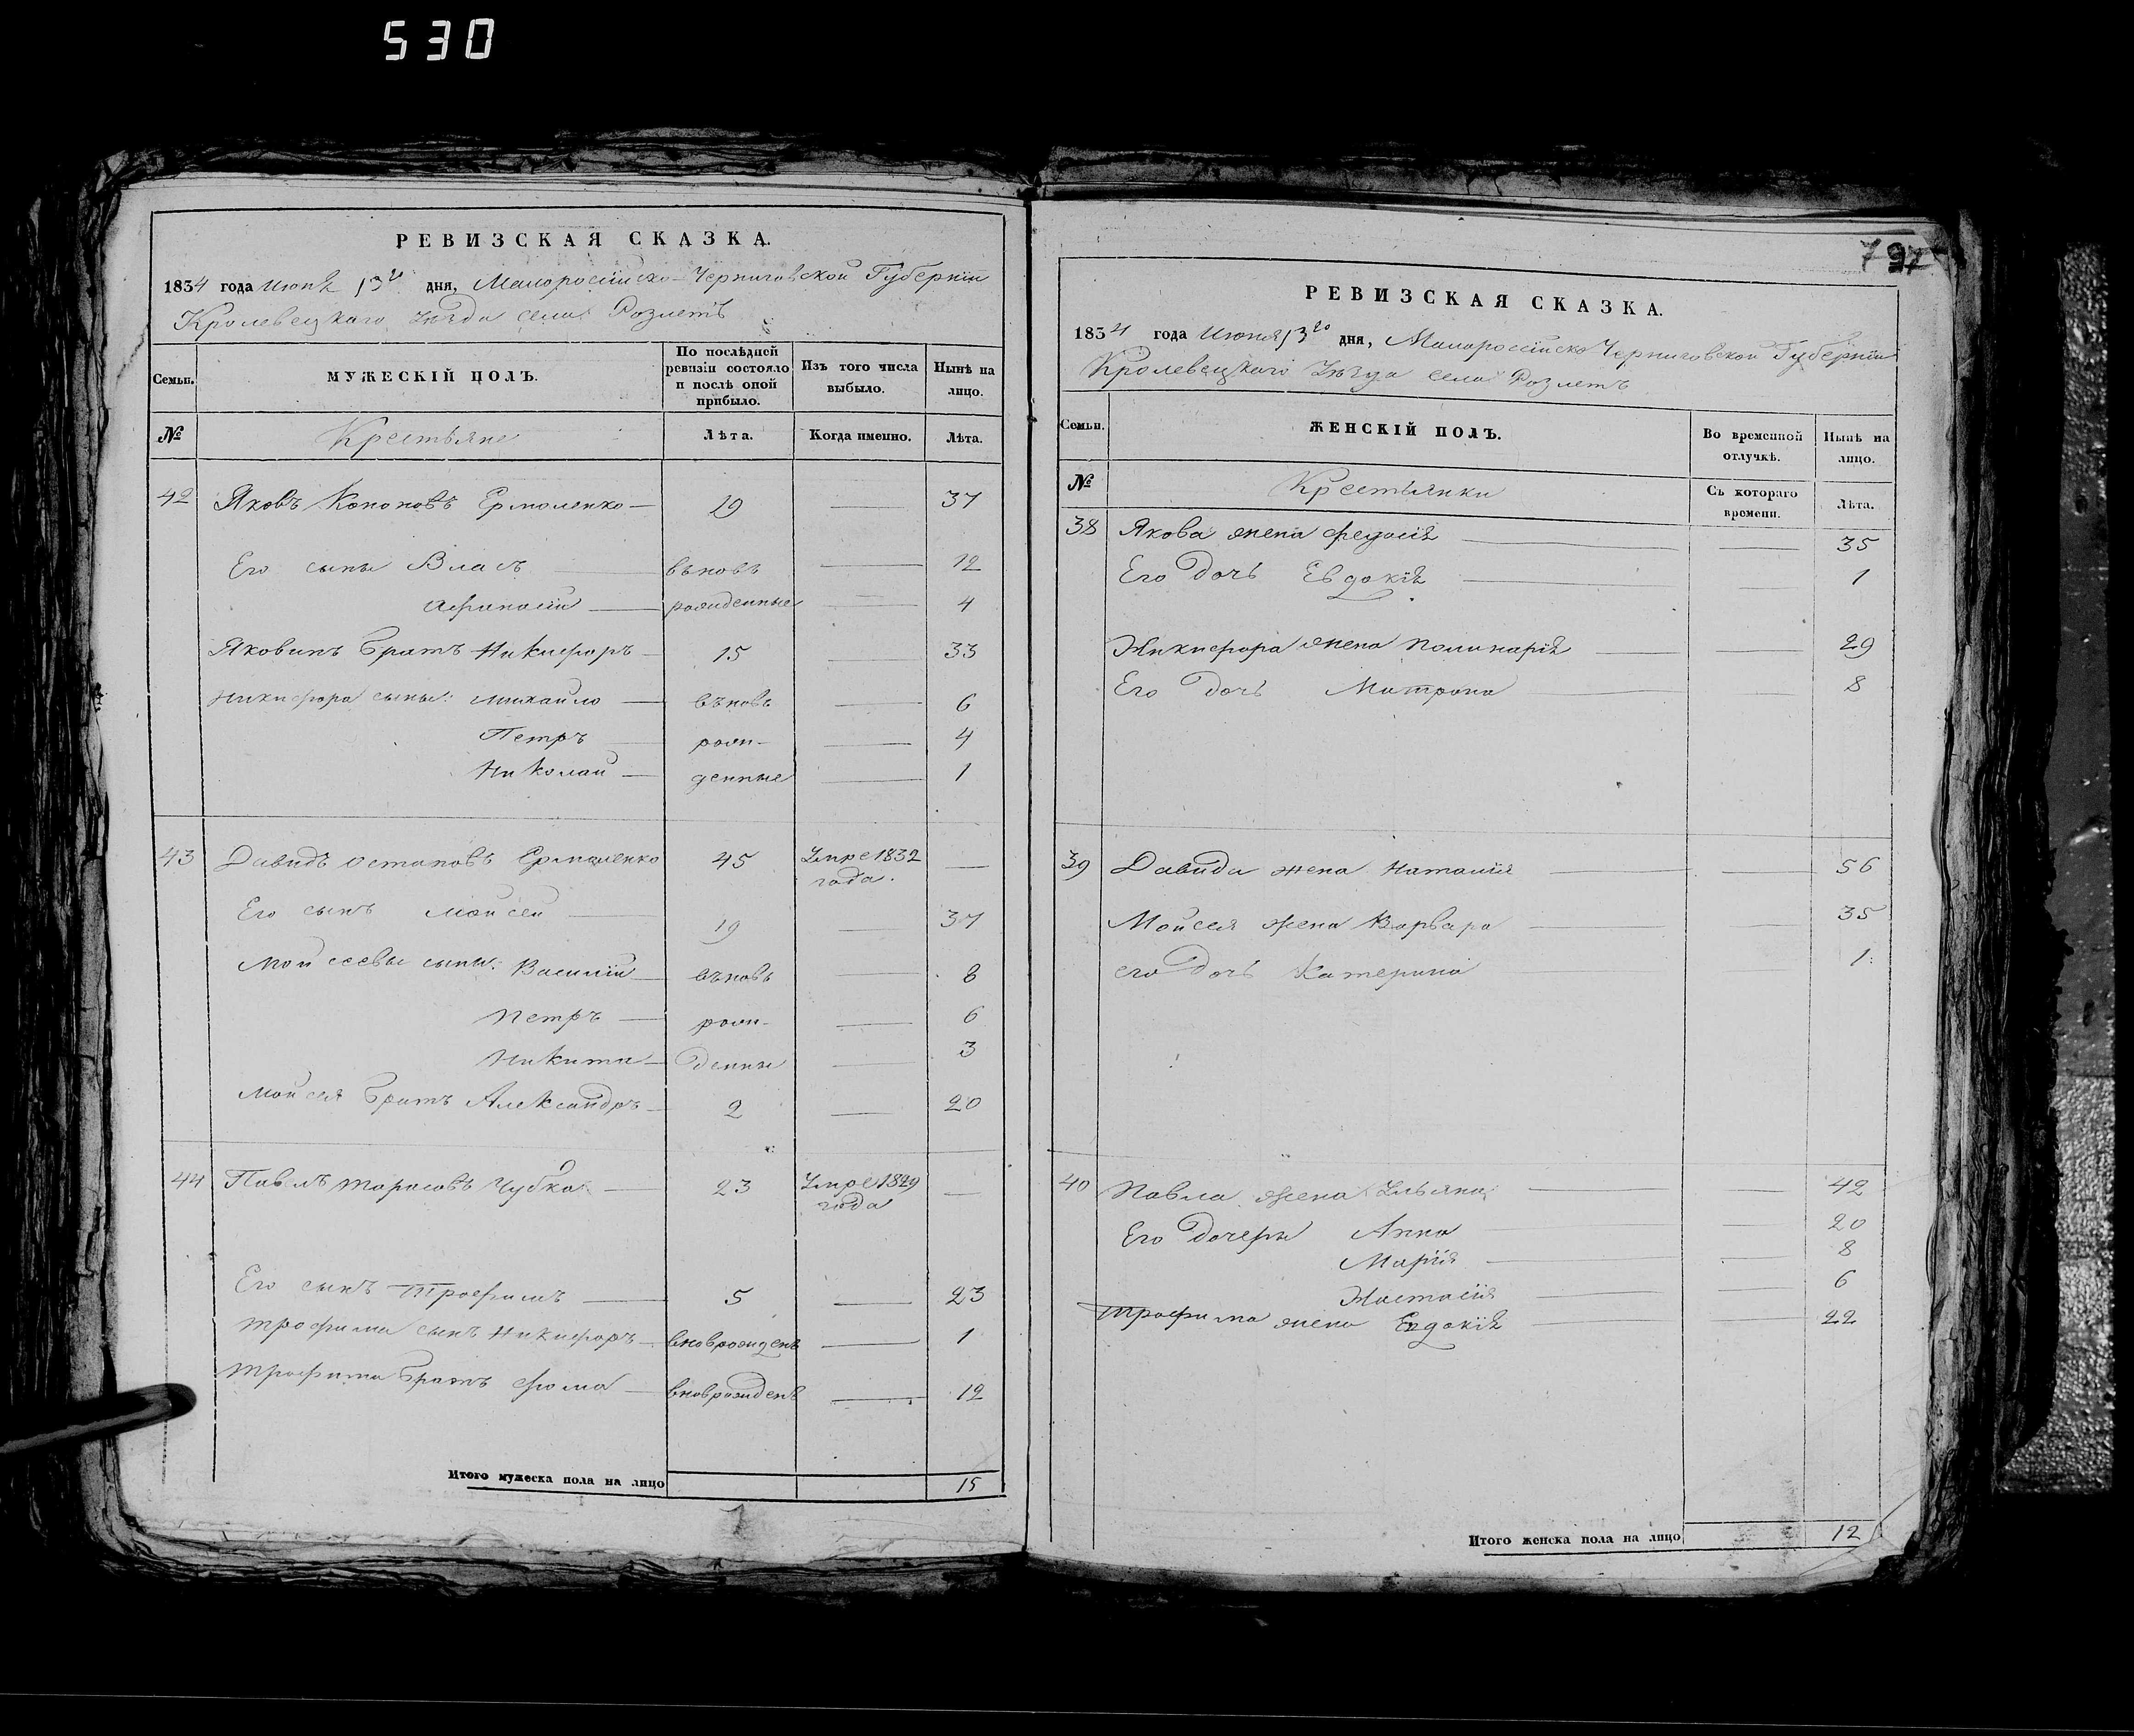 530
РЕВИЗСКАЯ СКАЗКА.
1834 года Июня 13го дня, Малороссійско-Черниговской Губерніи
Кролевецкаго Уѣзда села Розлетъ
Семьи.
МУЖЕСКІЙ ПОЛЪ.
По послѣдней ревизіи состояло и послѣ оной прибыло.
Изъ того числа выбыло.
Нынѣ на лицо.
№ Крестьяне Лѣта. Когда именно. Лѣта.
42 Яковъ Кононовъ Ермоленко — 19 — 37
Его сыны Власъ — вѣновь — 12
Афанасій — рожденные — 4
Яковинъ братъ Никифоръ — 15 — 33
Никифора сыны: Михайло — вѣновь — 6
Петръ — рож- — 4
Николай — денные — 1
43 Давидъ Остаповъ Ермоленко 45 Умре 1832 года. —
Его сынъ Мойсей — 19 — 37
Мойсеевы сыны: Василій — вѣновь — 8
Петръ — рож- — 6
Никита — денны — 3
Мойсея братъ Александръ — 2 — 20
44 Павелъ Тарасовъ Чубко — 23 Умре 1829 года —
Его сынъ Трофимъ — 5 — 23
Трофима сынъ Никифоръ — вноврожденъ — 1
Трофима братъ Фома — вноврожденъ — 12
Итого мужеска пола на лицо 15
797
РЕВИЗСКАЯ СКАЗКА.
1834 года Июня 13го дня, Малороссійско Черниговской Губерніи
Кролевецкаго Уѣзда села Розлетъ
Семьи.
ЖЕНСКІЙ ПОЛЪ.
Во временной отлучкѣ.
Нынѣ на лицо.
№ Крестьянки Съ котораго времени. Лѣта.
38 Якова жена Федосія — — 35
Его дочь Евдокія — — 1
Никифора жена Полинарія — — 29
Его дочь Матрона — — 8
39 Давида жена Наталія — — 56
Мойсея жена Варвара — — 35
его дочь Катерина 1
40 Павла жена Ульяна — — 42
Его дочеры Анна — — 20
Марія — — 8
Настасія — — 6
Трофима жена Евдокія — — 22
Итого женска пола на лицо 12